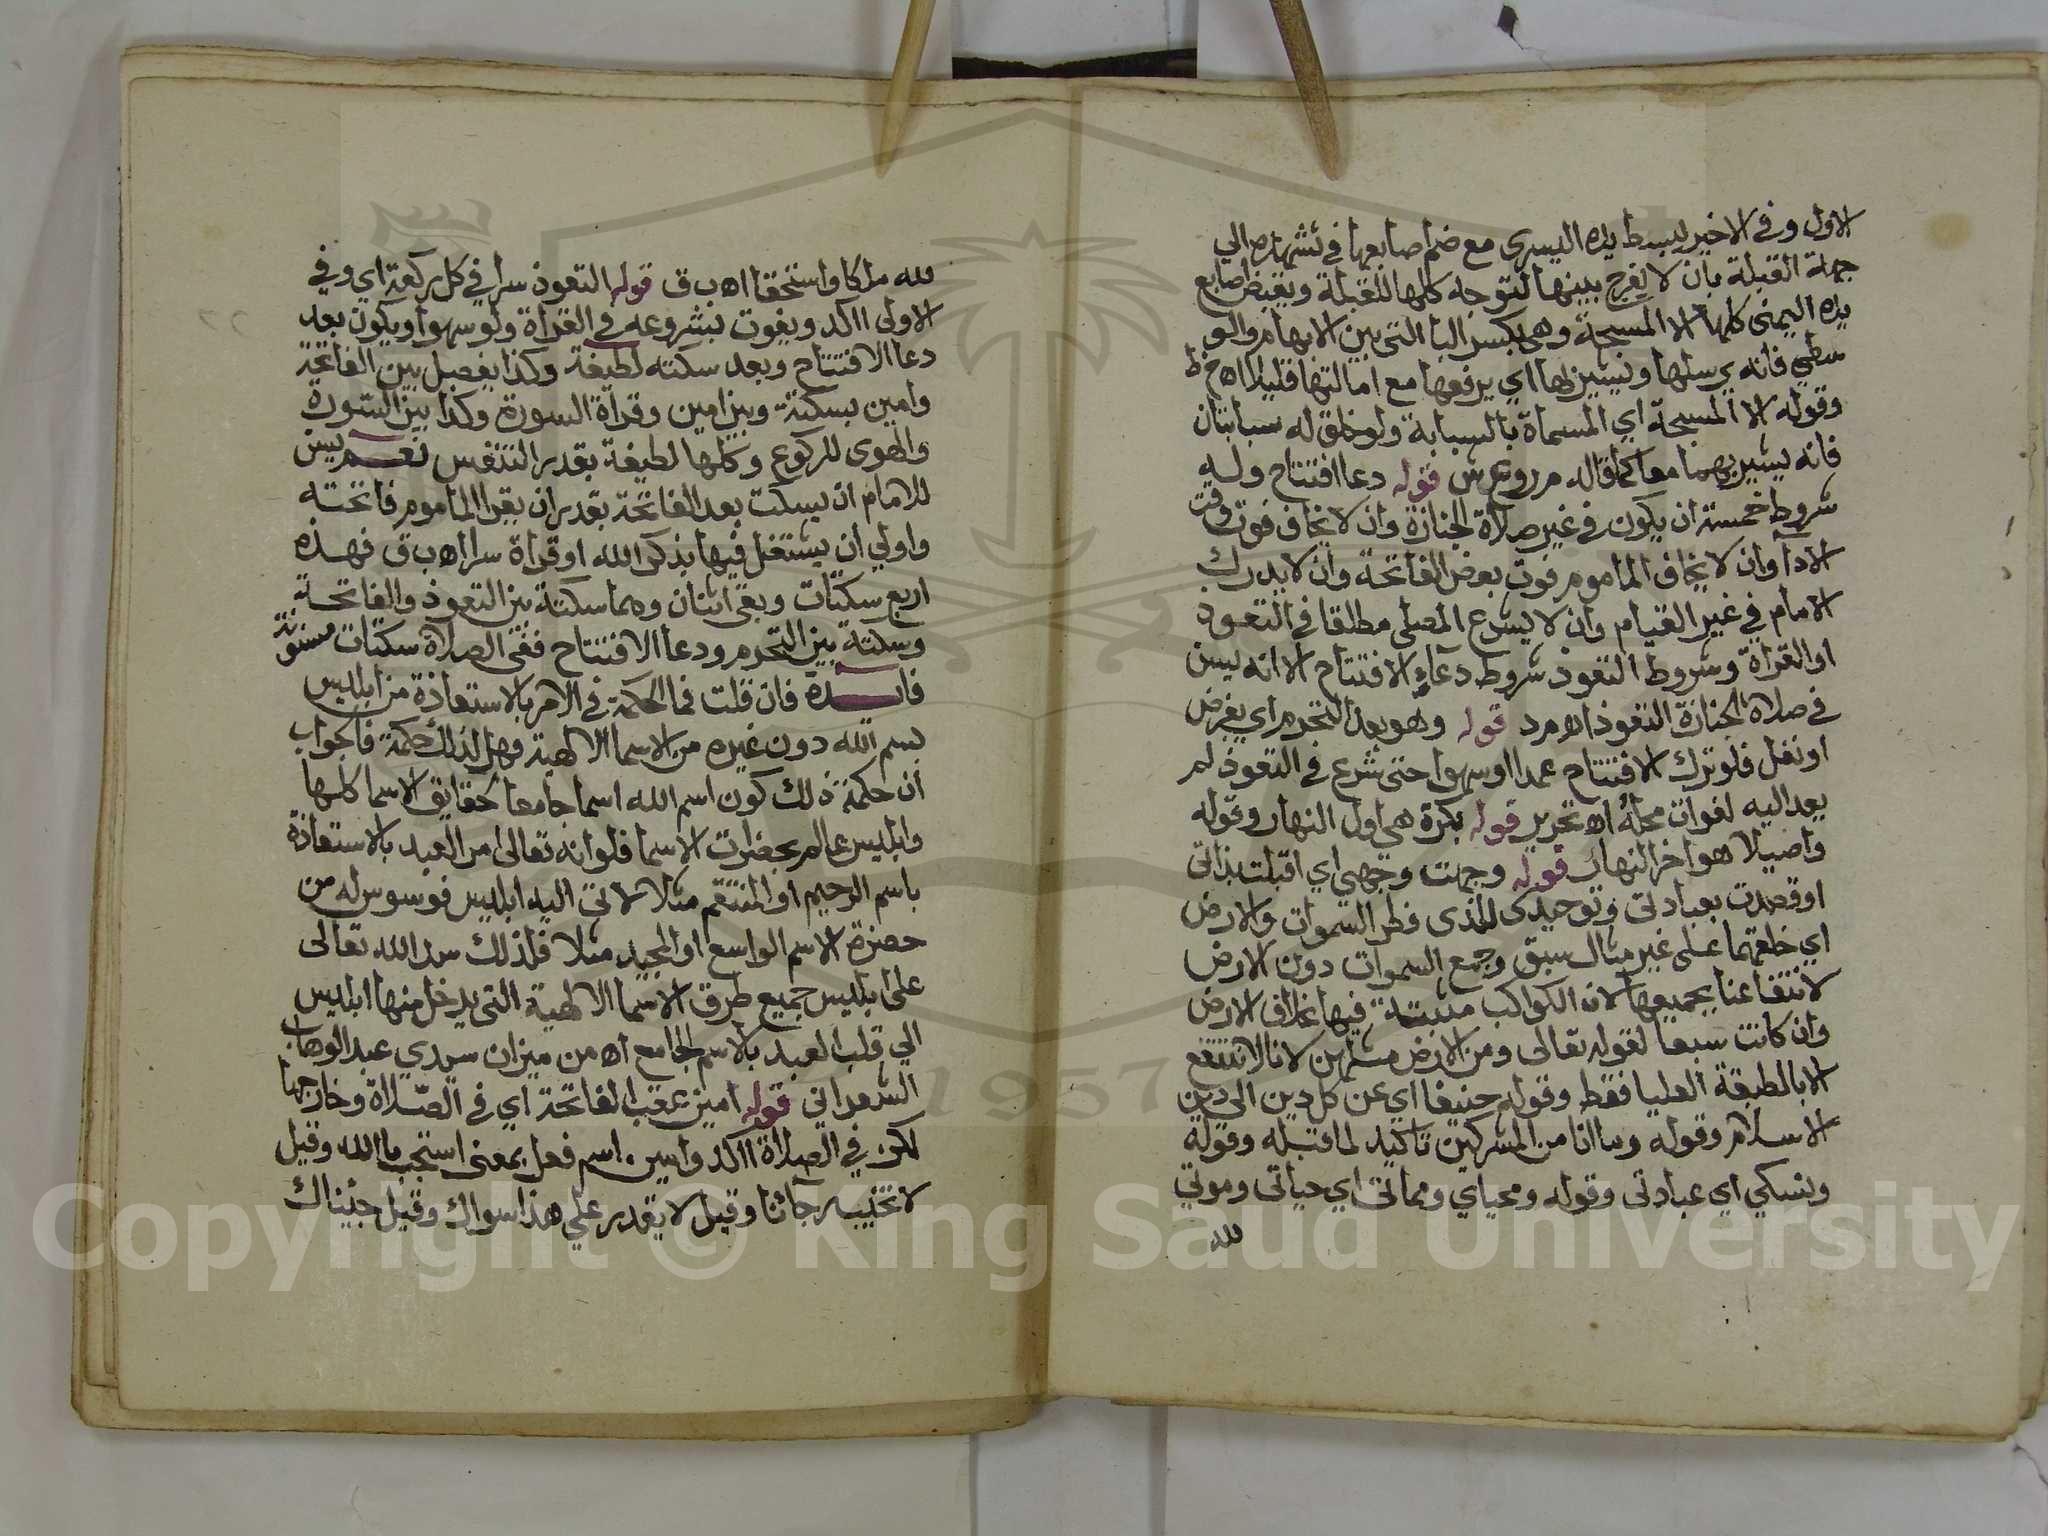 الاول وفي الاخير يبسط يده اليسرى مع ضم اصابعها في تشهده الي
جهة القبلة بان لا يفرج بينها لتوجه كلها للقبلة ويقبض اصابع
يده اليمنى كلها الا المسبحة وهي بكسر البا التي بين الابهام والو
سطي فانه يرسلها ويشير بها اي يرفعها مع امالتها قليلا اه خ ط
وقوله الا المسبحة اي المسماة بالسبابة ولو خلق له سبابتان
فانه يشير بهما معا كما قاله م ر وع ش قوله دعا افتتاح وله
شروط خمسة ان يكون في غير صلاة الجنازة وان لا يخاف فوت وقت
الادا وان لا يخاف الماموم فوت بعض الفاتحة وان لا يدرك
الامام في غير القيام وان لا يشرع المصلي مطلقا في التعوذ
او القراة وشروط التعوذ شروط دعاء الافتتاح الا انه يسن
في صلاة الجنازة التعوذ اه م د قوله وهو بعد التحرم اي بفرض
او نفل فلو ترك الافتتاح عمدا او سهوا حتى شرع في التعوذ لم
يعد اليه لفوات محله اه تحرير قوله بكرة هي اول النهار وقوله
واصيلا هو اخر النهار قوله وجهت وجهي اي اقبلت بذاتي
او قصدت بعبادتي وتوحيدي للذى فطر السموات والارض
اي خلقهما على غير مثال سبق وجمع السموات دون الارض
لانتفاعنا بجميعها لان الكواكب مثبتة فيها بخلاف الارض
وان كانت سبعا لقوله تعالى ومن الارض مثلهن لانا لا ننتفع
الا بالطبقة العليا فقط وقوله حنيفا اي عن كل دين الى دين
الاسلام وقوله وما انا من المشركين تاكيد لما قبله وقوله
ونسكي اي عبادتى وقوله ومحياي ومماتى اي حياتى وموتي
لله
لله ملكا واستحقاقا اه ب ق قوله التعوذ سرا في كل ركعة اي وفي
الاولى ااكد ويفوت بشروعه في القراة ولو سهوا ويكون بعد
دعا الافتتاح وبعد سكتة لطيفة وكذا يفصل بين الفاتحة
وامين بسكتة وبين امين وقراة السورة وكذا بين السورة
والهوى للركوع وكلها لطيفة بقدر التنفس نعم يسن
للامام ان يسكت بعد الفاتحة بقدر ان يقرا الماموم فاتحته
واولي ان يشتغل فيها بذكر الله او قراة سرا اه ب ق فهذه
اربع سكتات وبقى اثنان وهما سكتة بين التعوذ والفاتحة
وسكتة بين التحرم ودعا الافتتاح ففى الصلاة سكتات مسنونة
فايدة فان قلت فما الحكمة في الامر بالاستعاذة من ابليس
بسم الله دون غيره من الاسما الالهية فهل لذلك حكمة فالجواب
ان حكمة ذلك كون اسم الله اسما جامعا لحقايق الاسما كلها
وابليس عالم بحضرات الاسما فلو انه تعالى امر العبد بالاستعاذة
باسم الرحيم او المنتقم مثلا لاتى اليه ابليس فوسوس له من
حضرة الاسم الواسع او المجيد مثلا فلذلك سد الله تعالى
على ابليس جميع طرق الاسما الالهية التى يدخل منها ابليس
الي قلب العبد بالاسم الجامع اه من ميزان سيدي عبد الوهاب
الشعراني قوله امين عقب الفاتحة اي في الصلاة وخارجها
لكن في الصلاة ااكد وامين اسم فعل بمعنى استجب يا الله وقيل
لا تخيب رجآئنا وقيل لا يقدر على هذا سواك وقيل جئناك
Copyright © King Saud University
1957